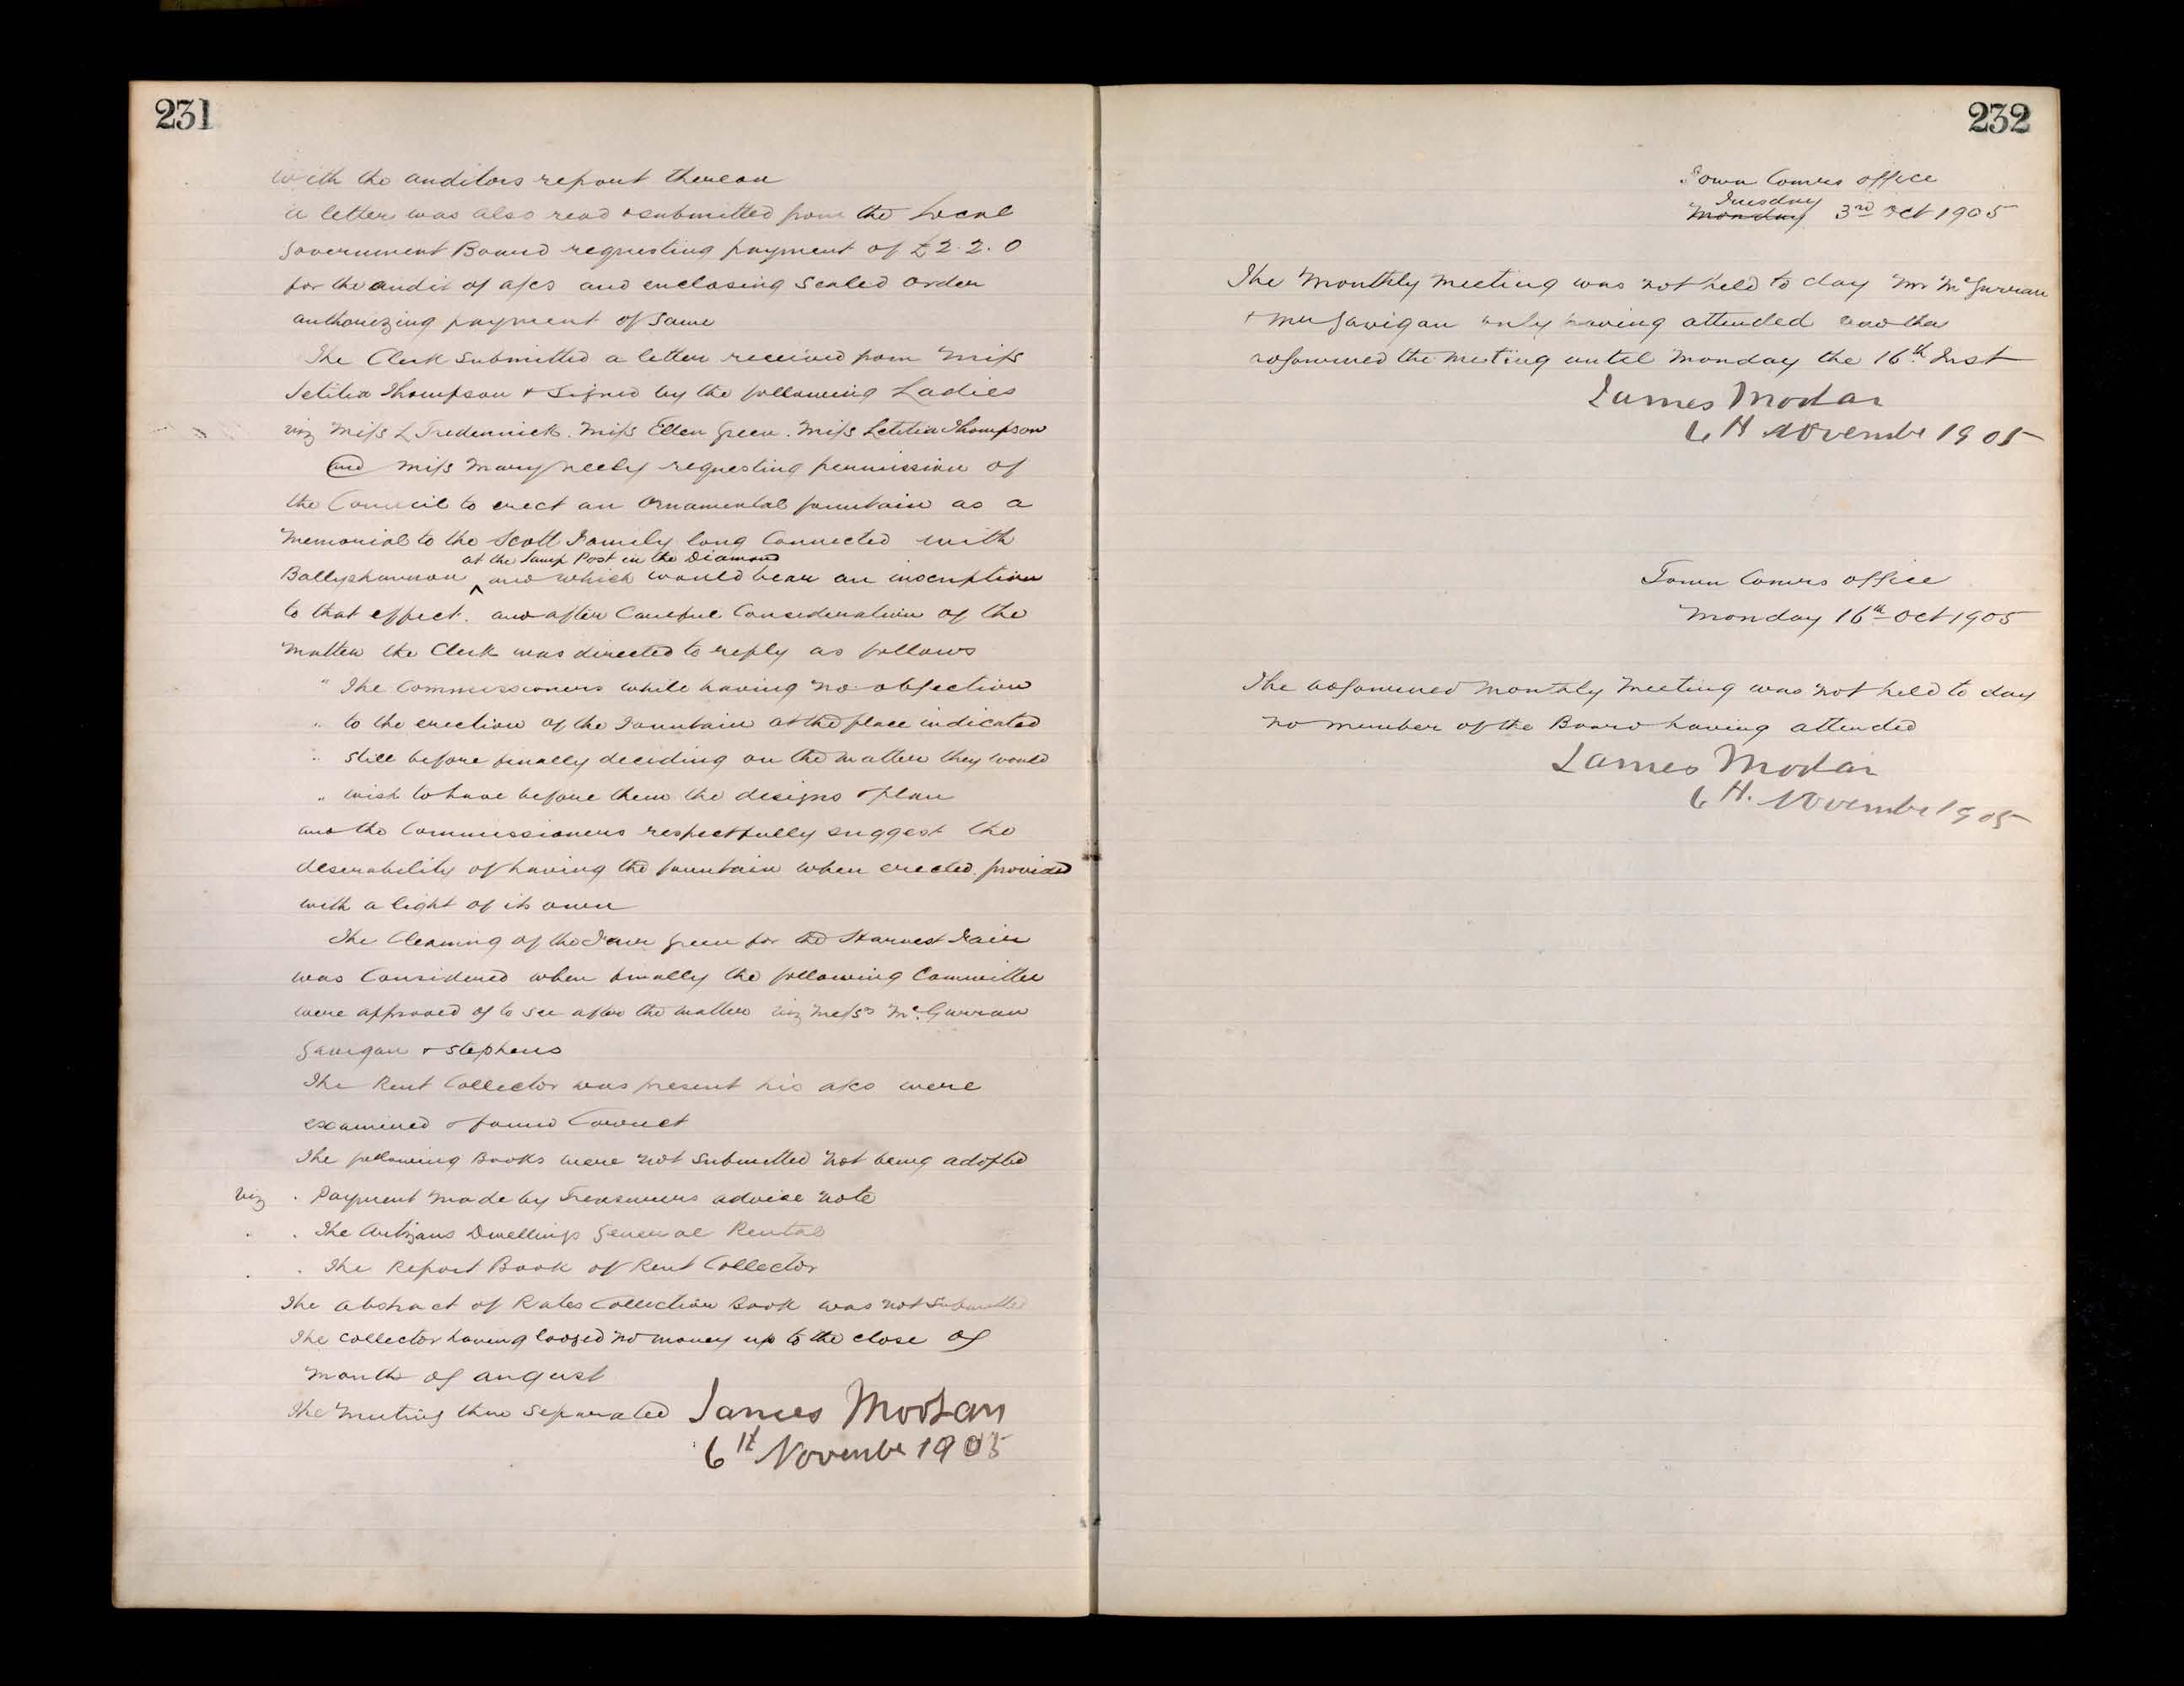 231
with the auditors report thereon
a letter was also read & submitted from the Local
Government Board requesting payment of £2.2.0
for the audit of a/cs and enclosing Sealed Order
authorizing payment of same
The Clerk submitted a letter received from Miss
Letitia Thompson & signed by the following Ladies
viz Miss L Tredennick. Miss Ellen Green. Miss Letitia Thompson
and Miss Mary Neely requesting permission of
the Council to erect an Ornamental fountain as a
Memorial to the Scott Family long Connected with
at the Lamp Post in the Diamond
Ballyshannon ^ and which would bear an inscription
to that effect. and after Careful Consideration of the
matter the Clerk was directed to reply as follows
" The Commissioners while having no objection
" to the erection of the Fountain at the place indicated
" still before finally deciding on the matter they would
" wish to have before them the designs & plan
and the Commissioners respectfully suggest the
desirability of having the fountain when erected provided
with a light of its own
The Cleaning of the Fair green for the Harvest Fair
was Considered when finally the following Committee
were approved of to see after the matter viz Messrs McGurran
Gavigan & Stephens
The Rent Collector was present his a/cs were
examined & found Correct
The following Books were not submitted not being adopted
viz . Payment made by Treasurers advise note
. . The Artizans Dwellings General Rental
. . The Report Book of Rent Collector
The abstract of Rates Collection Book was not submitted
The collector having lodged no money up to the close of
month of august
The Meeting then separated James Morgan
6th November 1905
232
Town Comrs office
Tuesday
Monday 3rd Oct 1905
The Monthly Meeting was not held to day Mr McGurran
& Mr Gavigan only having attended and the
adjourned the meeting until Monday the 16th Inst
James Morgan
6th November 1905
Town Comrs office
Monday 16th Oct 1905
The adjourned monthly Meeting was not held to day
no member of the Board having attended
James Morgan
6th. November 1905